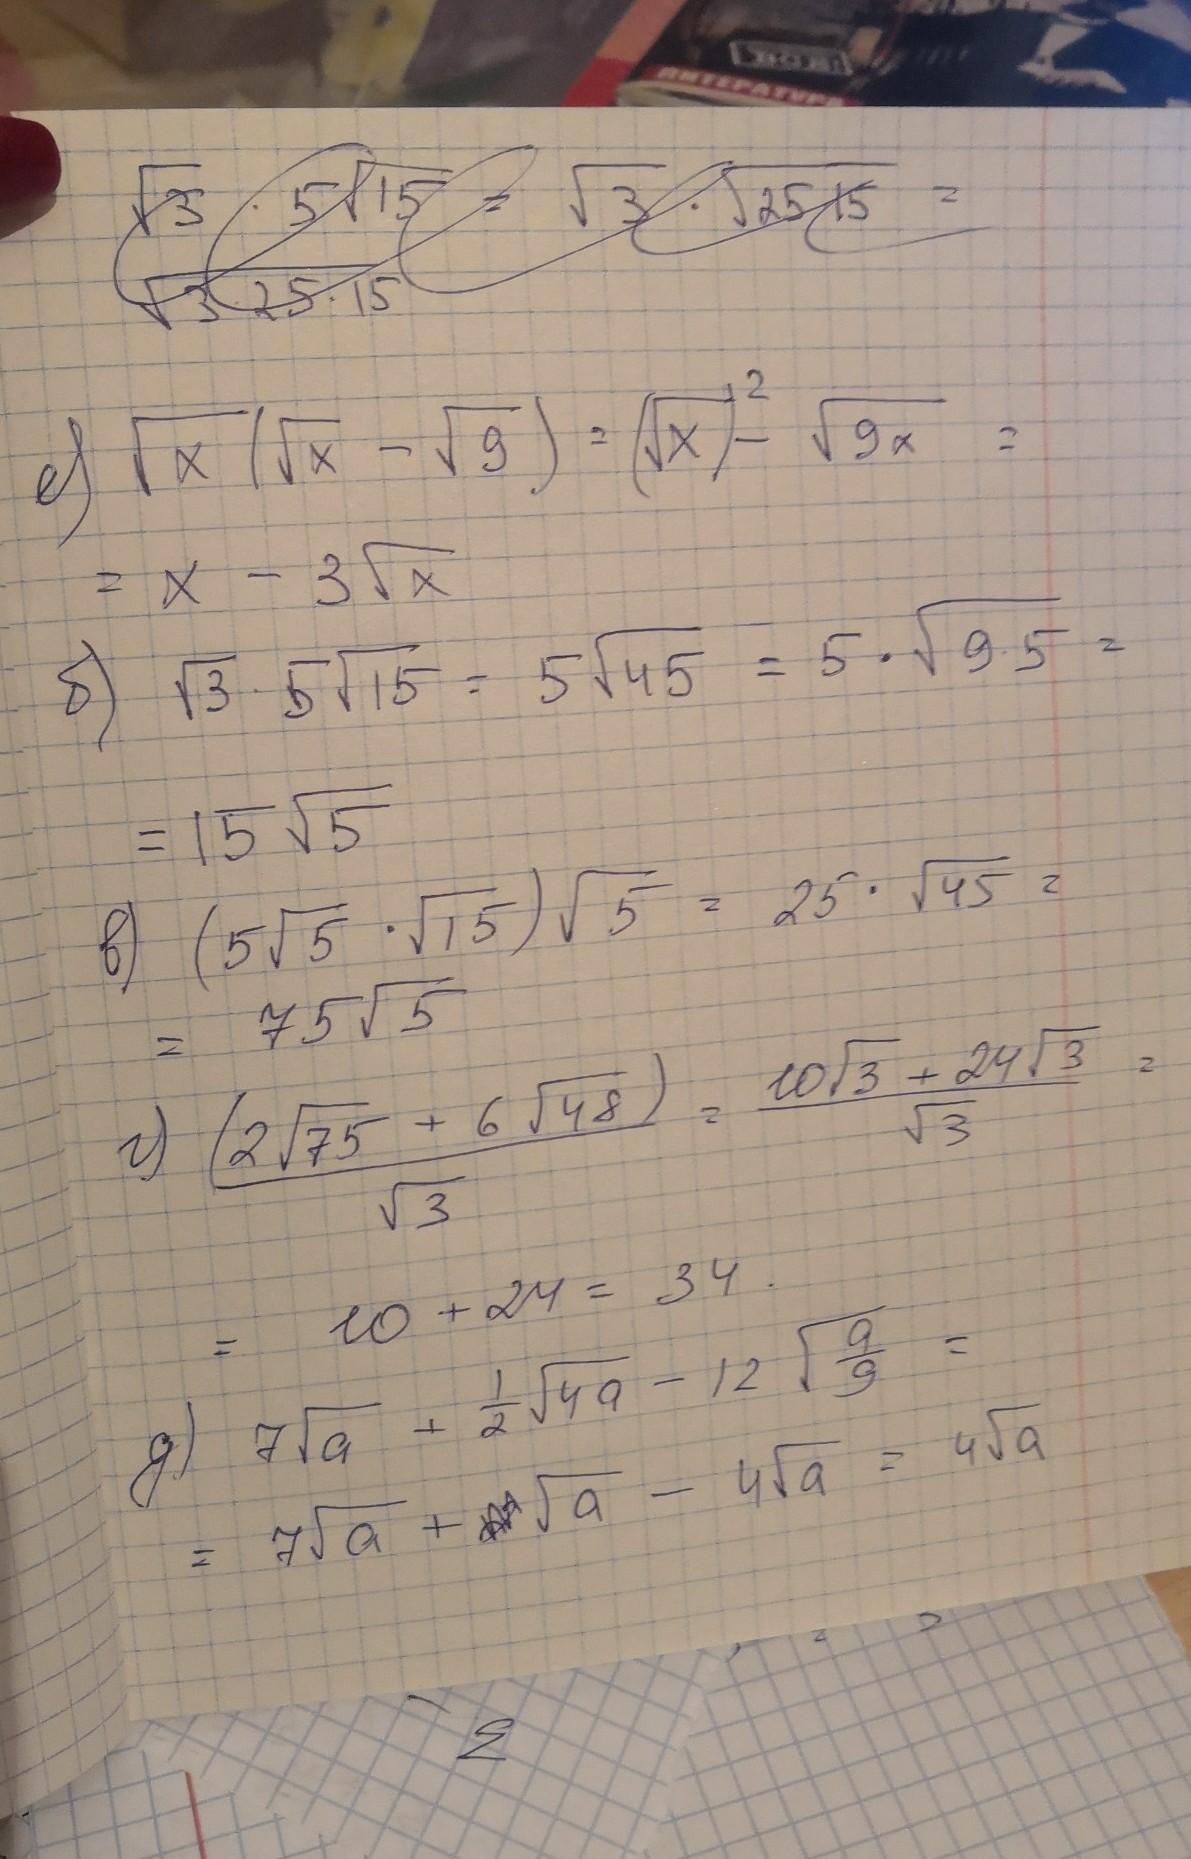 ЛИТЕРАТУРА
√3 · 5√15 = √3 · √25 15 =
√3·25·15
е) √x (√x - √9) = (√x)² - √9x =
= x - 3√x
б) √3 · 5√15 = 5√45 = 5 · √9·5 =
= 15√5
в) (5√5 · √15)√5 = 25 · √45 =
= 75√5
г) (2√75 + 6√48)/√3 = (10√3 + 24√3)/√3 =
= 10 + 24 = 34.
д) 7√a + 1/2 √4a - 12√(a/9) =
= 7√a + √a - 4√a = 4√a